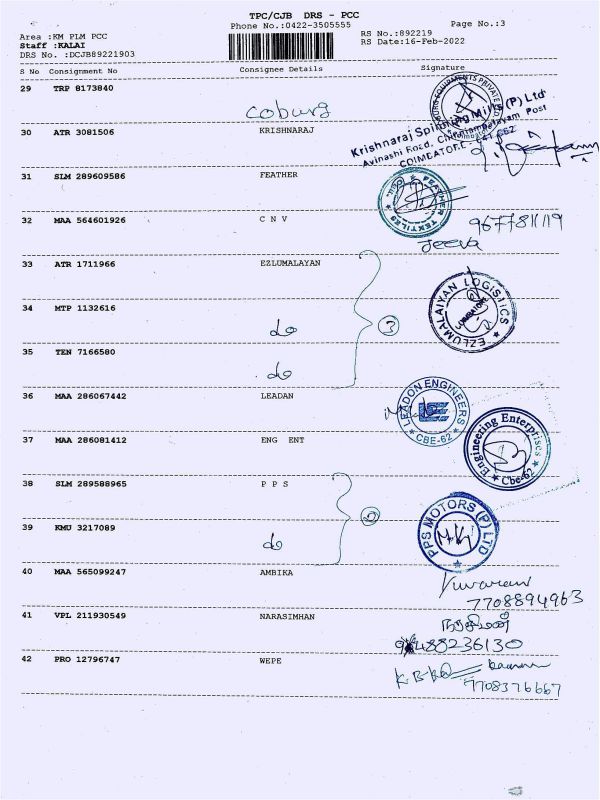 TPC/CJB DRS - PCC
Phone No.:0422-3505555 Page No.:3
Area :KM PLM PCC RS No.:892219
Staff :KALAI RS Date:16-Feb-2022
DRS No. :DCJB89221903
S No Consignment No Consignee Details Signature
29 TRP 8173840
coburg
30 ATR 3081506 KRISHNARAJ
Krishnaraj Spinning Mills (P) Ltd
Avinashi Road, Chinniampalayam Post
COIMBATORE - 641 062
31 SLM 289609586 FEATHER
FEATHER TEXTILES
32 MAA 564601926 C N V 9677811119
Jeeva
33 ATR 1711966 EZLUMALAYAN
EZLUMALAIYAN LOGISTICS
34 MTP 1132616 do 3
35 TEN 7166580 do
36 MAA 286067442 LEADAN
LEADON ENGINEERS
CBE-62
37 MAA 286081412 ENG ENT
Engineering Enterprises
Cbe-62
38 SLM 289588965 P P S
PPS MOTORS (P) LTD
39 KMU 3217089 do 2
40 MAA 565099247 AMBIKA
7708894963
41 VPL 211930549 NARASIMHAN
88236130
42 PRO 12796747 WEPE
7708376667